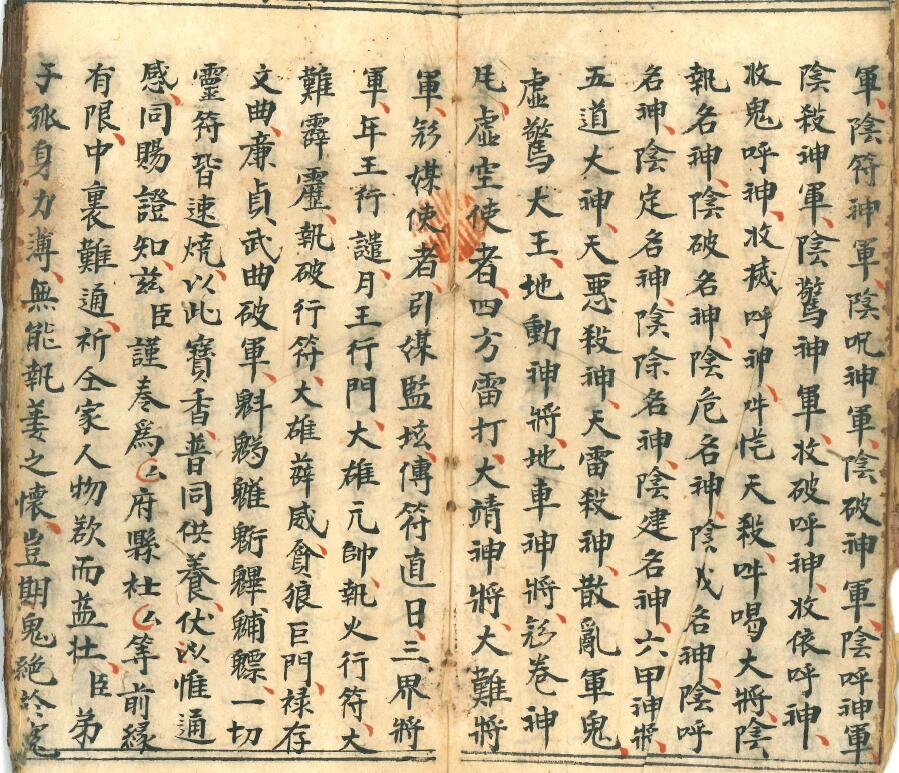 軍、陰符神軍、陰呪神軍、陰破神軍、陰呼神軍
陰殺神軍、陰驚神軍、收破呼神、收依呼神、
收鬼呼神、收械呼神、吽恾天殺、吽喝大將、陰
執名神、陰破名神、陰危名神、陰戊名神、陰呼
名神、陰定名神、陰除名神、陰建名神、六甲神將、
五道大神、天悪殺神、天雷殺神、散亂軍鬼、
虛驚大王、地動神將、地車神將、卷神
虛空使者、四方雷打、大靖神將、大難將
軍、媒使者、引媒監垓、傳符直日、三界將
軍、年王行譴、月王行門、大雄元帥、執火行符、大
難霹靂、執破行符、大雄薜威、貪狼巨門、祿存
文曲、廉貞、武曲破軍、魁䰢䰨魓䰟、一切
靈符皆速燒、以此寶香、普同供養、伏以惟通
感、同賜證知、茲臣謹奏爲厶府縣社厶等前緣
有限、中裏難通、祈仝家人物欲而益壮、臣弟
子孤身力薄、無能執妄之懷、豈期鬼絕於